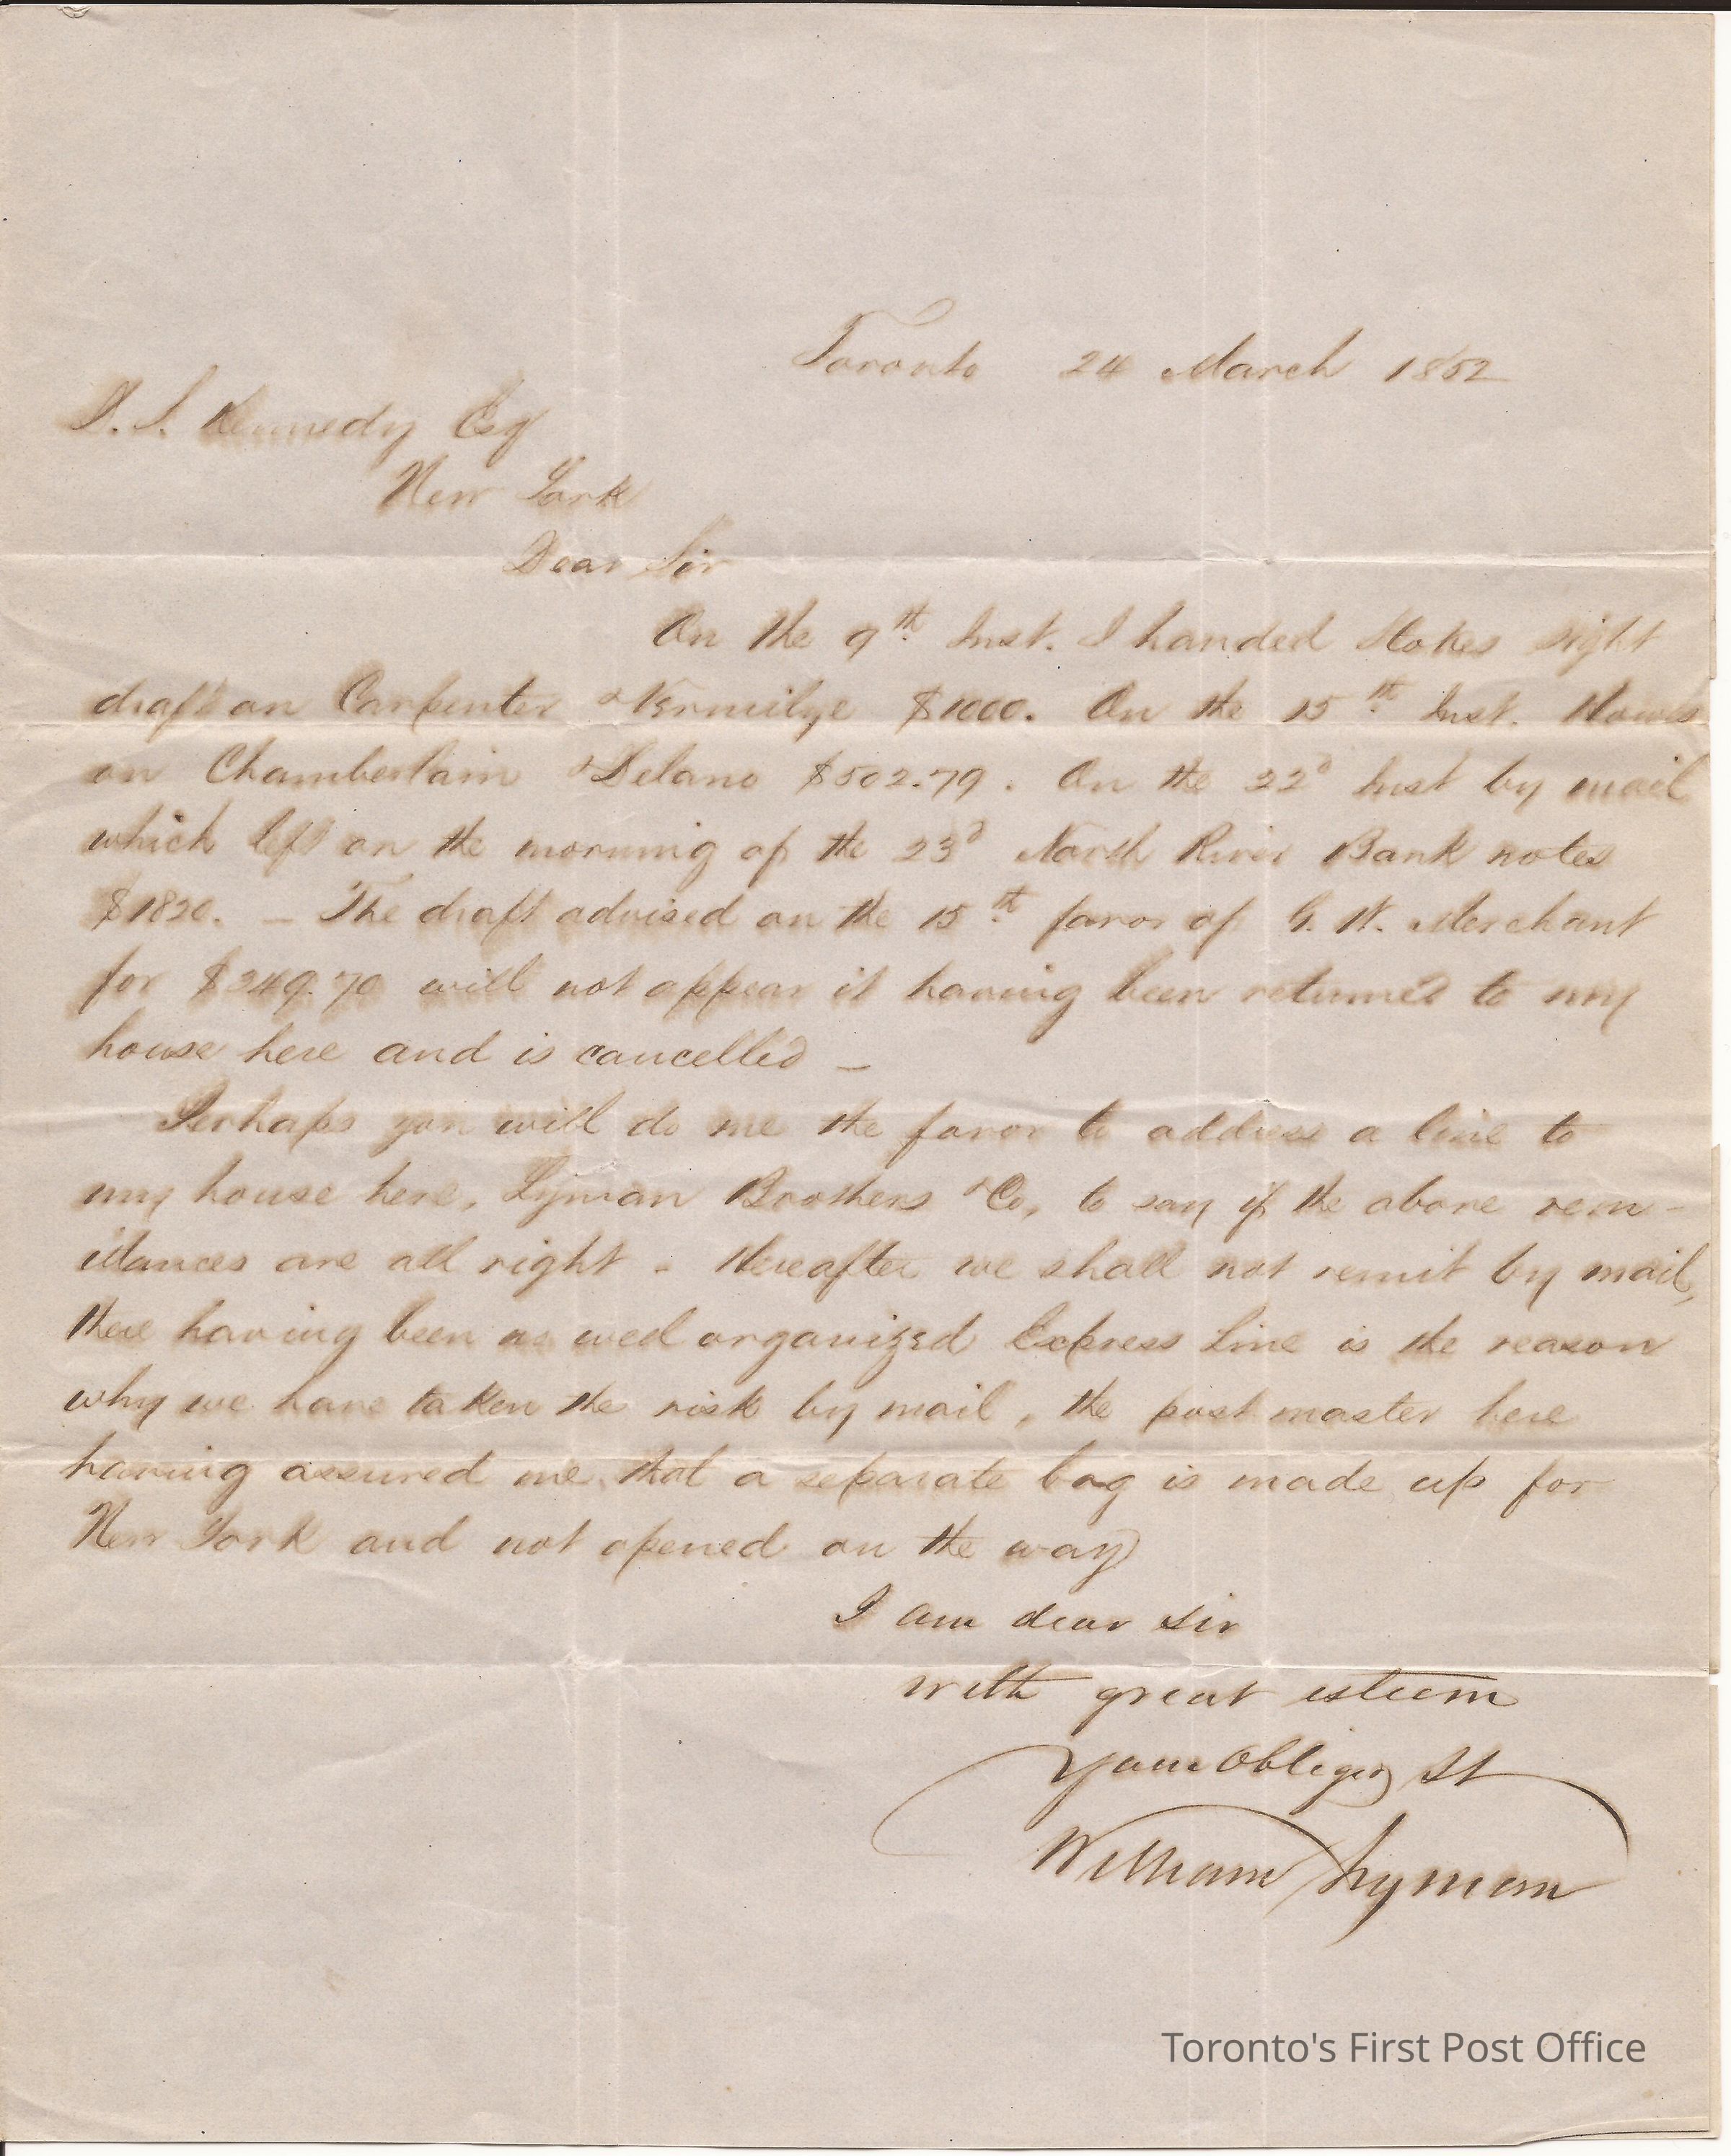 Toronto 24 March 1852
D. S. Kennedy Esq
New York
Dear Sir
On the 9th Inst. I handed Stokes sight
draft on Carpenter & Vermilye $1000. On the 15th Inst. Howes
on Chamberlain & Delano $502.79. On the 22d Inst by mail
which left on the morning of the 23d North River Bank notes
$1820. — The draft advised on the 15th favor of G. W. Merchant
for $249.70 will not appear it having been returned to my
house here and is cancelled —
Perhaps you will do me the favor to address a line to
my house here, Lyman Brothers & Co, to say if the above rem-
itances are all right - Hereafter we shall not remit by mail,
there having been no well organized Express Line is the reason
why we have taken the risk by mail, the post master here
having assured me that a separate bag is made up for
New York and not opened on the way
I am dear sir
with great esteem
Your Obliged St
William Lyman
Toronto's First Post Office